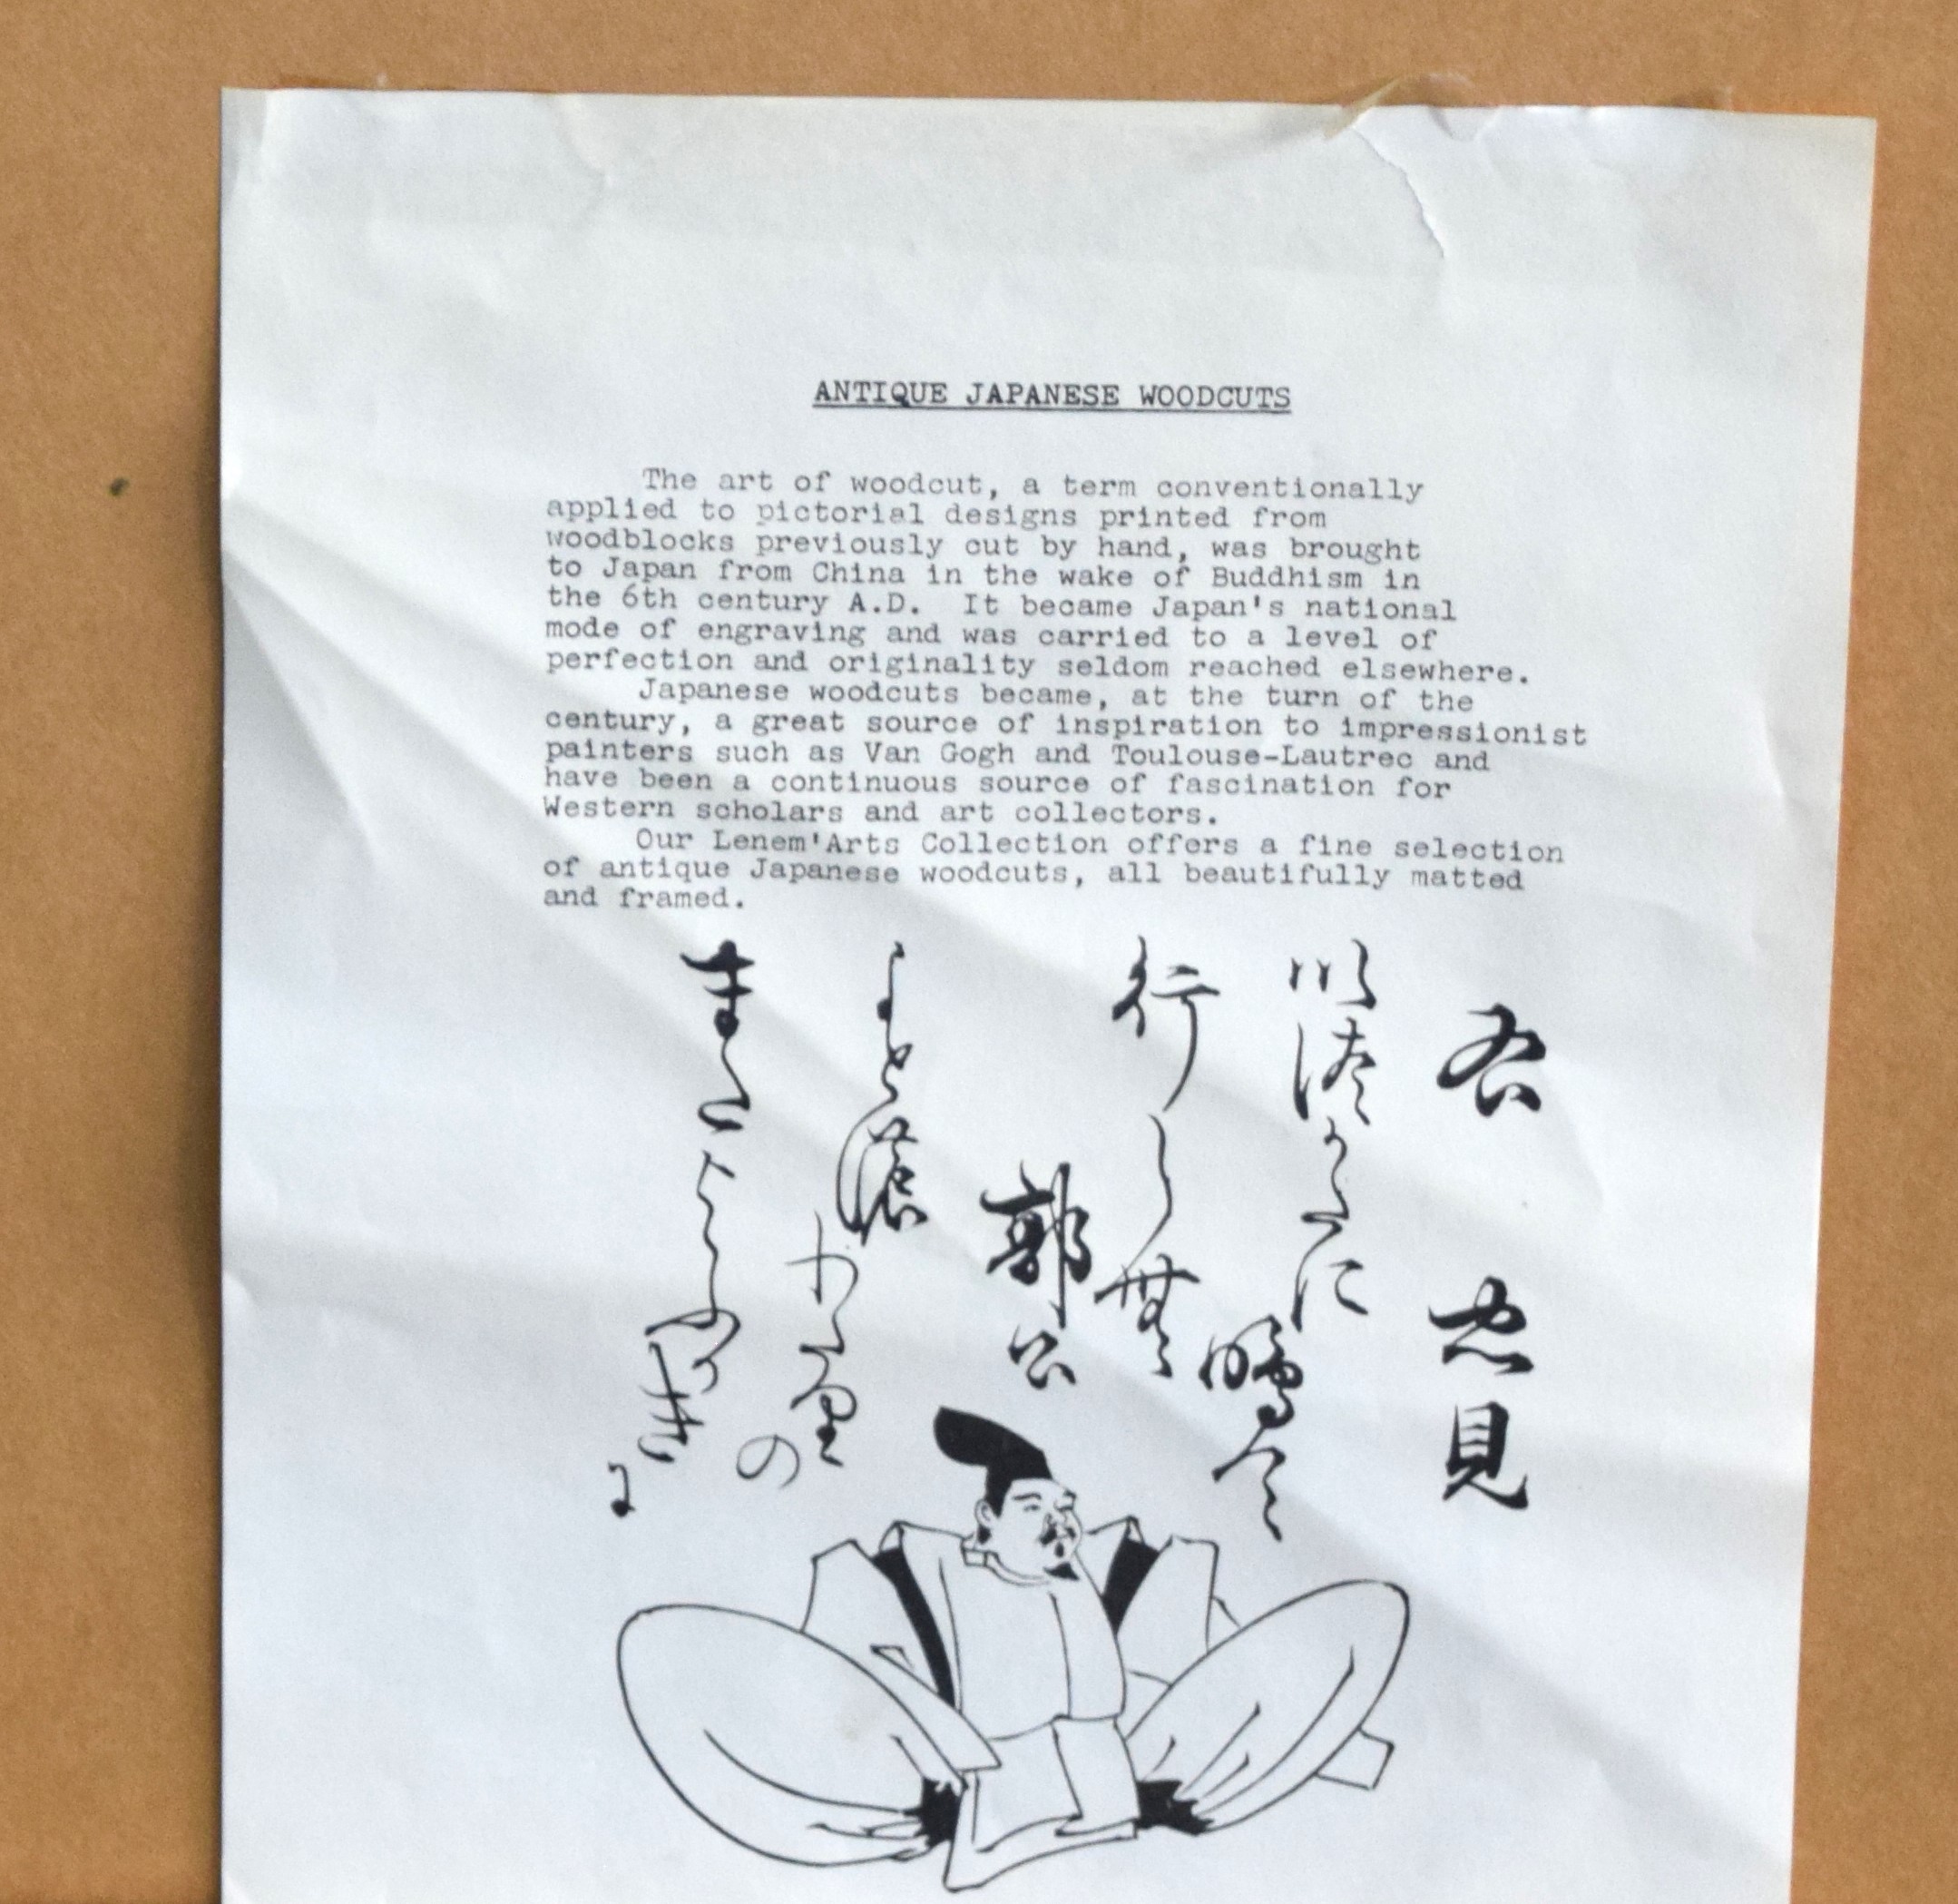 ANTIQUE JAPANESE WOODCUTS
The art of woodcut, a term conventionally
applied to pictorial designs printed from
woodblocks previously cut by hand, was brought
to Japan from China in the wake of Buddhism in
the 6th century A.D. It became Japan's national
mode of engraving and was carried to a level of
perfection and originality seldom reached elsewhere.
Japanese woodcuts became, at the turn of the
century, a great source of inspiration to impressionist
painters such as Van Gogh and Toulouse-Lautrec and
have been a continuous source of fascination for
Western scholars and art collectors.
Our Lenem'Arts Collection offers a fine selection
of antique Japanese woodcuts, all beautifully matted
and framed.
右 忠見
かたに
鳴
行ら無
郭公
よと濃
わた里の
またよふかき
に